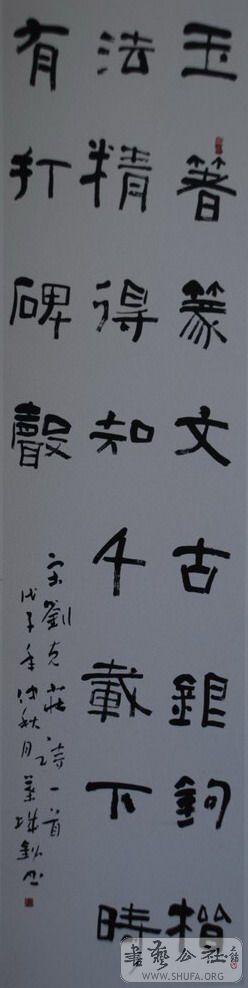 玉箸篆文古銀鉤楷
法精得知千載下時
有打碑聲
宋劉克莊詩一首
戊子年仲秋月
書藝公社
WWW.SHUFA.ORG